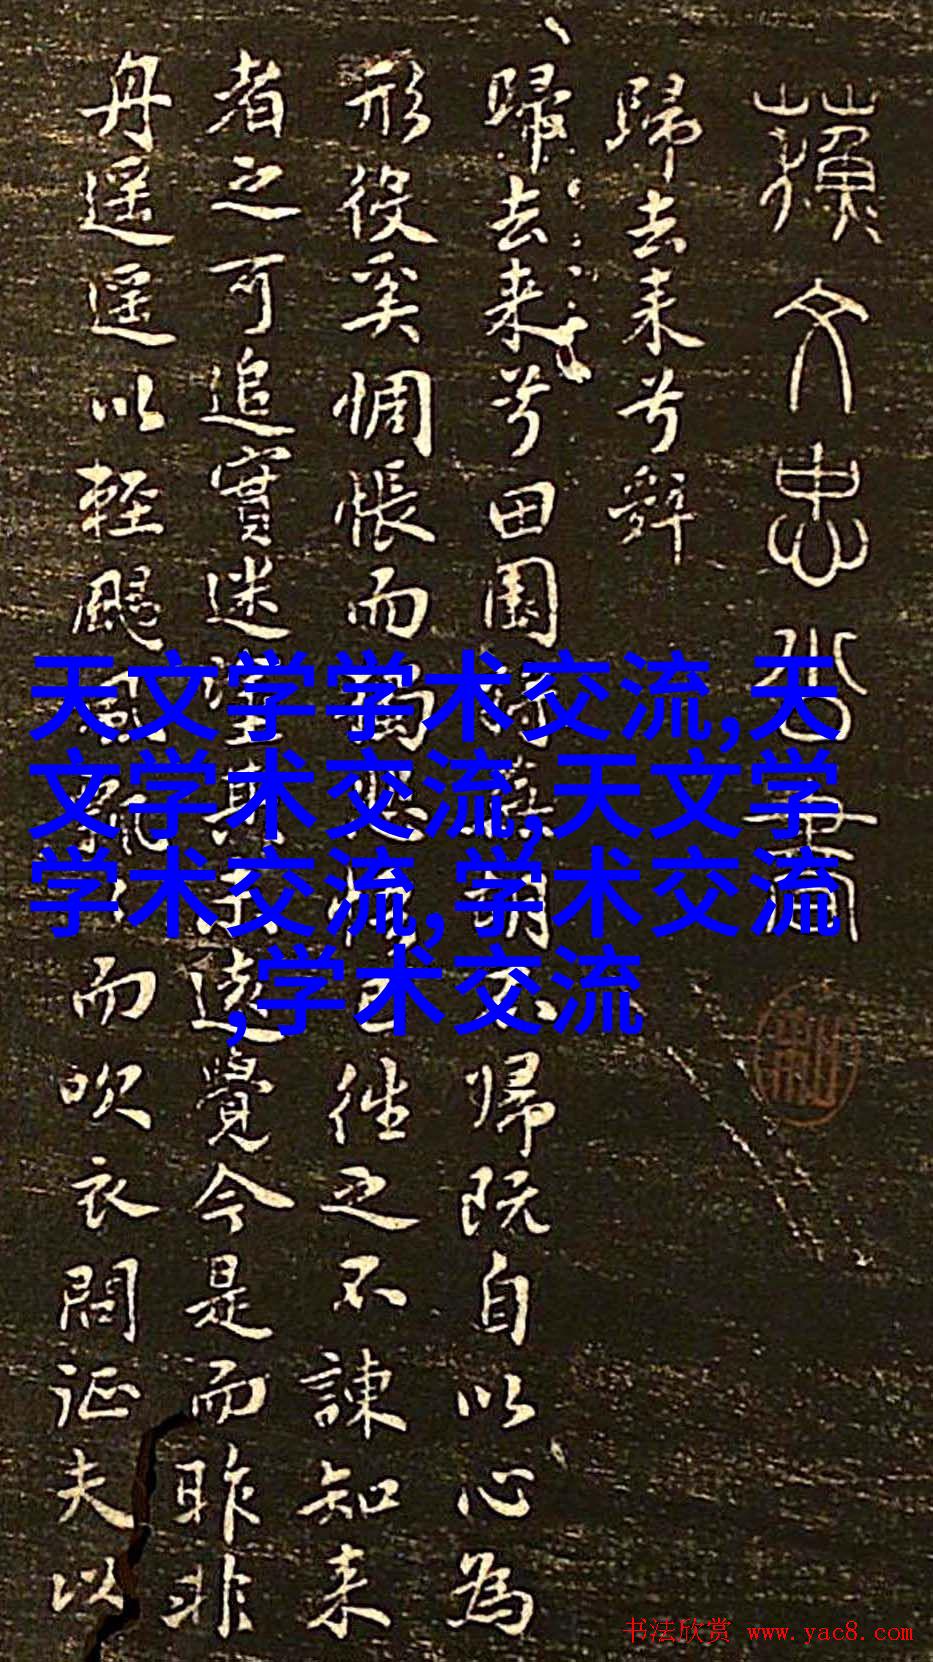 蘓文忠公書
歸去来兮辭
歸去来兮田園將蕪胡不歸既自以心為
形役奚惆悵而獨悲悟已往之不諫知来
者之可追實迷塗其未遠覺今是而昨非
舟遥遥以輕颺風飄飄而吹衣問征夫以
天文学学术交流,天
文学术交流,天文学
学术交流,学术交流
,学术交流
书法欣赏 www.yac8.com